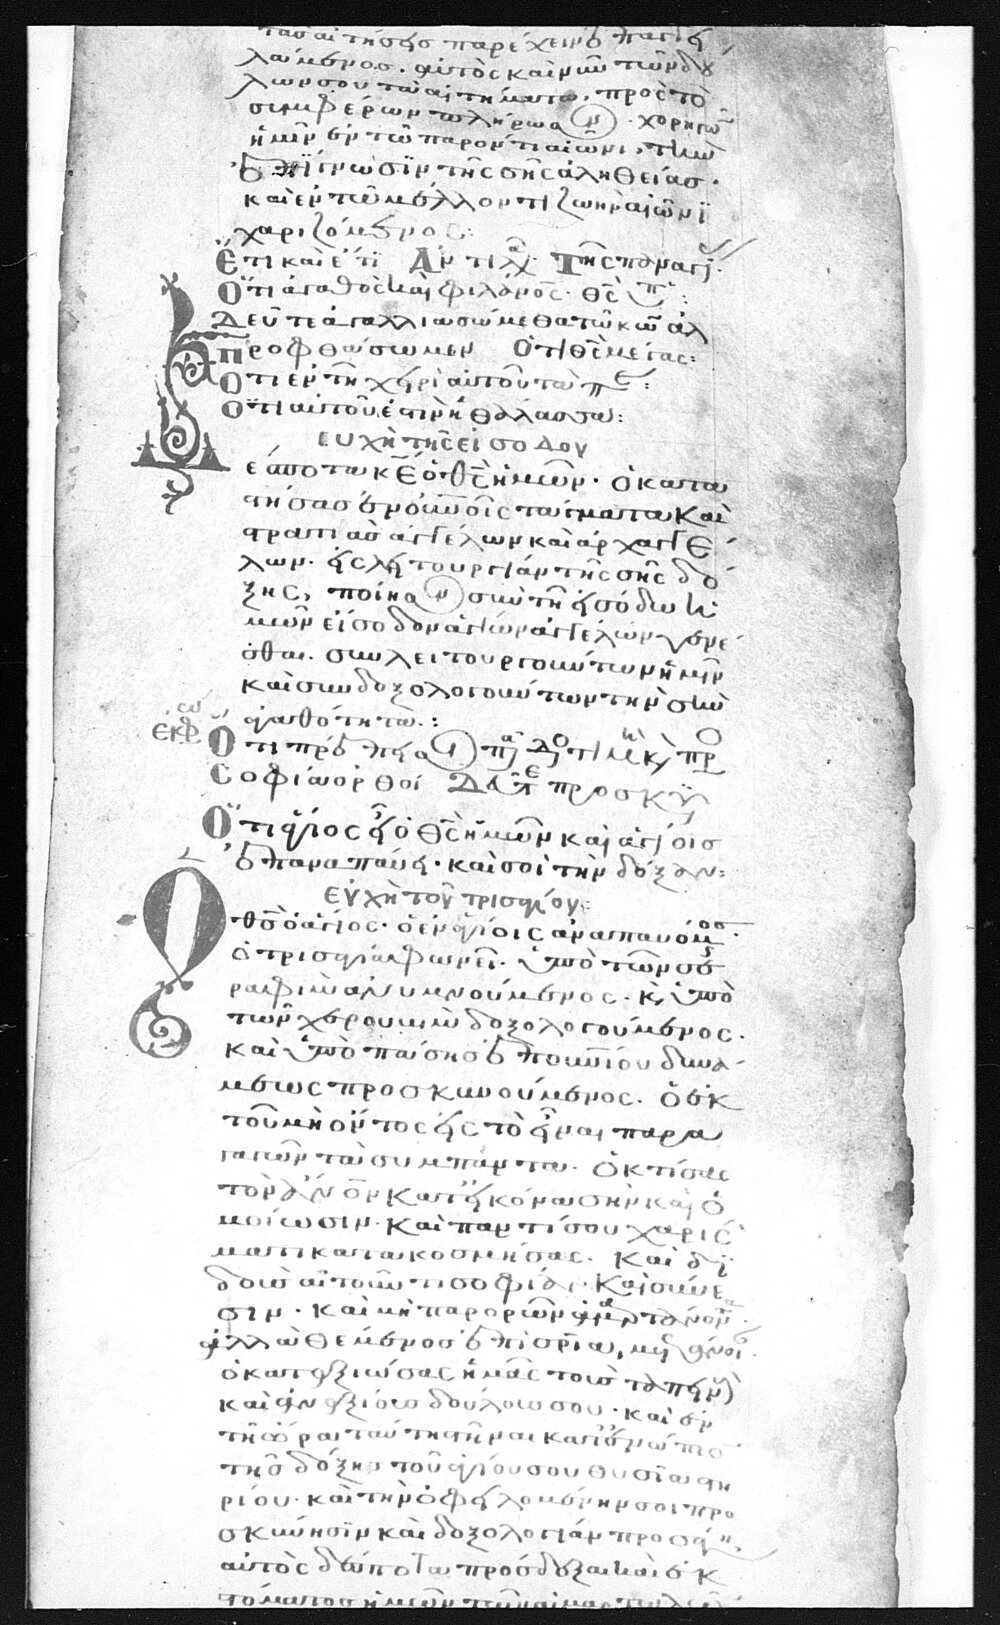 τὰς αἰτήσεις παρέχειν ἐπαγγει
λάμενος. αὐτὸς καὶ νῦν τῶν δού
λων σου τὰ αἰτήματα, πρὸς τὸ
συμφέρων πλήρωσον. χορηγῶν
ἡμῖν ἐν τῶ παρόντι αἰῶνι, τὴν
ἐπίγνωσϊν τῆς σῆς ἀληθείας.
καὶ ἐν τῶ μέλλοντι ζωὴν αἰώνιϊ
χαριζόμενος:
Ἔτι καὶ ἔτι Ἀντιλα Τῆς παναγι
Ὅτι ἀγαθὸς καὶ φιλάνος. θς
Δεῦτε ἀγαλλιασώμεθα τῶ κω ἀλ
προφθάσωμεν Ὅτι θς μέγας:
Ὅτι ἐν τῆ χειρὶ αὐτοῦ τὰ πε:
Ὅτι αὐτοῦ ἐστιν ἡ θάλασσα:
εὐχὴ τῆς εἰσόδου
Δέσποτα κε ὁ θς ἡμῶν. ὁ κατα
στήσας ἐν οὐνοῖς τάγματα καὶ
στρατιὰς ἀγγέλων καὶ ἀρχαγγέ
λων. εἰς λητουργίαν τῆς σῆς δό
ξης, ποίησον σὺν τῆ εἰσόδω ἡ
μῶν εἴσοδον ἁγίων ἀγγέλων γενέ
σθαι. συλλειτουργούντων ἡμῖν
καὶ συνδοξολογούντων τὴν σὴν
ἀγαθότητα:
ἐκφω Ὅτι πρέπει σοι
Σοφία ὀρθοί Δεῦτε προσκυ
Ὅτι ἅγιος εἶ ὁ θς ἡμῶν καὶ ἁγίοις
ἐπαναπαύει. καὶ σοὶ τὴν δόξαν:
εὐχὴ τοῦ τρισαγίου:
Ὁ θς ὁ ἅγιος. ὁ ἐν ἁγίοις ἀναπαυόμενος.
ὁ τρισαγία φωνεῖ. ὑπὸ τῶν σε
ραφὶμ ἀνυμνούμενος. κ, ὑπὸ
τῶν χερουβὶμ δοξολογούμενος.
καὶ ὑπὸ πάσης ἐπουνίου δυνά
μεως προσκυνούμενος. ὁ ἐκ
τοῦ μὴ ὄντος εἰς τὸ εἶναι παρα
γαγῶν τὰ συμπάντα. ὁ κτίσας
τὸν ἄνον κατ' εἰκόνα σὴν καὶ ὁ
μοίωσιν. καὶ παντί σου χαρίς
ματι κατακοσμήσας. καὶ δϊ
δοὺς αἰτοῦντι σοφία. καὶ σύνε
σιν. καὶ μὴ παρορῶν ἁμαρτάνον.
ἀλλὰ θέμενος ἐπὶ σρία, μετάνοι.
ὁ καταξιώσας ἡμᾶς τοὺς ταπειν
καὶ ἀναξίους δούλους σου. καὶ ἐν
τῆ ὥρα ταύτη στῆναι κατενώπιο
τῆς δόξης τοῦ ἁγίου σου θυσιαστη
ρίου. καὶ τὴν ὀφειλομένην σοι προ
σκύνησϊν καὶ δοξολογίαν προσά
αὐτὸς δέσποτα πρόσδεξαι καὶ ἐκ
τόματος ἡμῶν τῶν ἁμαρτωλῶν